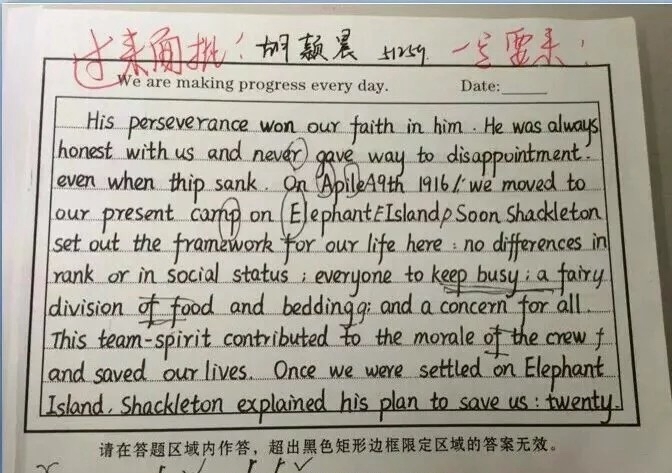 过来面批！胡颖晨 51259 一定要来！
We are making progress every day. Date:
His perseverance won our faith in him. He was always
honest with us and never gave way to disappointment.
even when thip sank. On Apile A9th 1916, we moved to
our present camp on Elephant Island, Soon Shackleton
set out the framework for our life here : no differences in
rank or in social status ; everyone to keep busy ; a fairy
division of food and bedding ; and a concern for all.
This team-spirit contributed to the morale of the crew
and saved our lives. Once we were settled on Elephant
Island, Shackleton explained his plan to save us : twenty.
请在答题区域内作答，超出黑色矩形边框限定区域的答案无效。